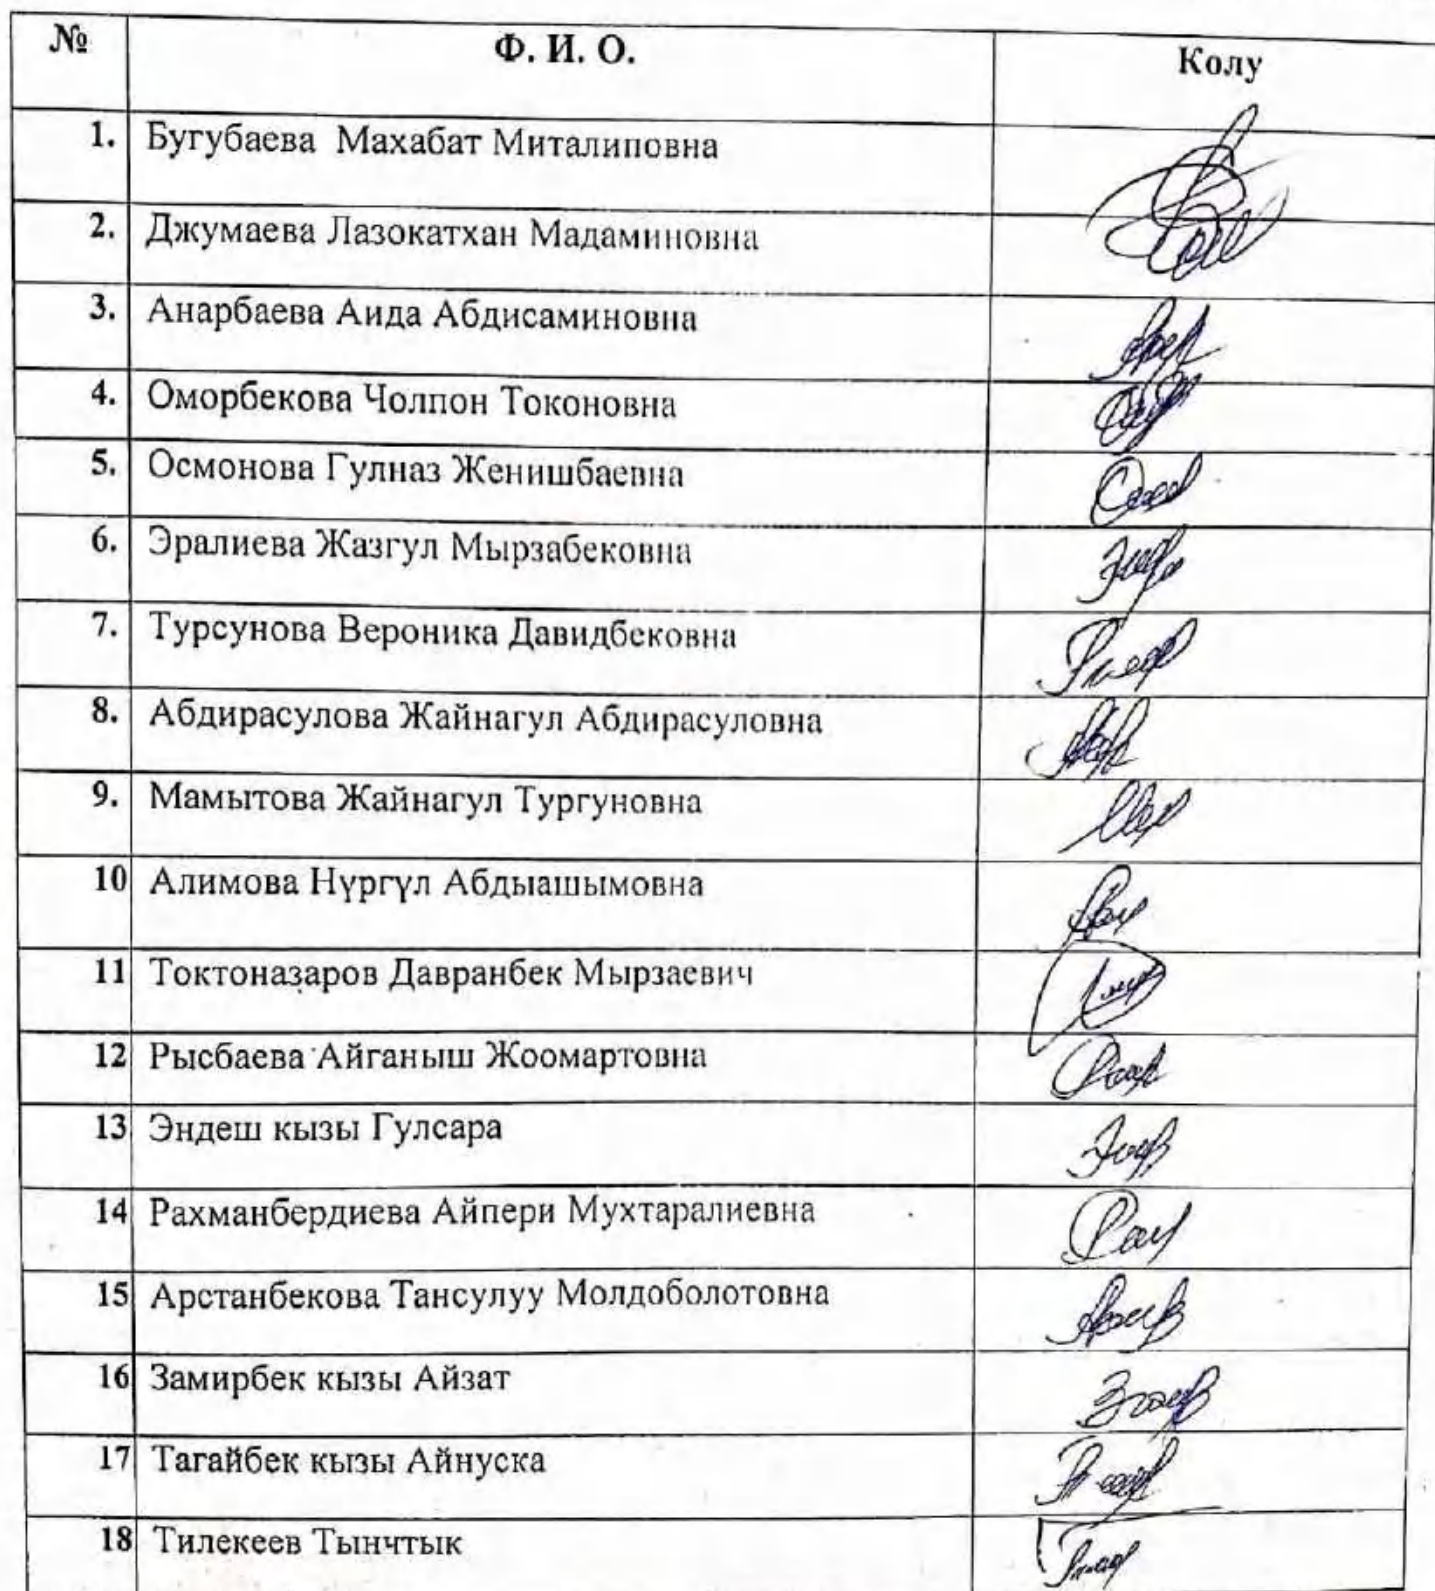 № Ф. И. О. Колу
1. Бугубаева Махабат Миталиповна
2. Джумаева Лазокатхан Мадаминовна
3. Анарбаева Аида Абдисаминовна
4. Оморбекова Чолпон Токоновна
5. Осмонова Гулназ Женишбаевна
6. Эралиева Жазгул Мырзабековна
7. Турсунова Вероника Давидбековна
8. Абдирасулова Жайнагул Абдирасуловна
9. Мамытова Жайнагул Тургуновна
10 Алимова Нүргүл Абдыашымовна
11 Токтоназаров Давранбек Мырзаевич
12 Рысбаева Айганыш Жоомартовна
13 Эндеш кызы Гулсара
14 Рахманбердиева Айпери Мухтаралиевна
15 Арстанбекова Тансулуу Молдоболотовна
16 Замирбек кызы Айзат
17 Тагайбек кызы Айнуска
18 Тилекеев Тынчтык